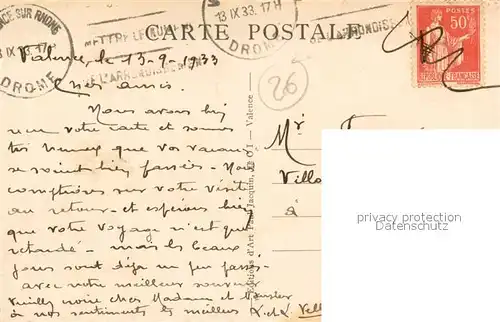 CE SUR RHONE
13 IX 33. 17 H
DROME
METTRE LE NUM
DE L'ARRONDISSEMENT
13 IX 33. 17 H
DROME
DE L'ARRONDISSE
CARTE POSTALE
50c
FRANÇAISE
Valence, le 13-9-1933
Chers amis.
26
Nous avons bien
votre carte et sommes
très heureux que vos vacances
se soient bien passées - Nous
comptions sur votre visite
au retour - et espérons bien
que votre voyage n'est que
retardé - mais les beaux
jours sont déjà un peu passés.
avec notre meilleur souvenir
Veuillez croire cher Madame et Monsieur
à nos sentiments les meilleurs
Editions d'Art Jacquin, - Valence
Mr
Villa
à
privacy protection
Datenschutz